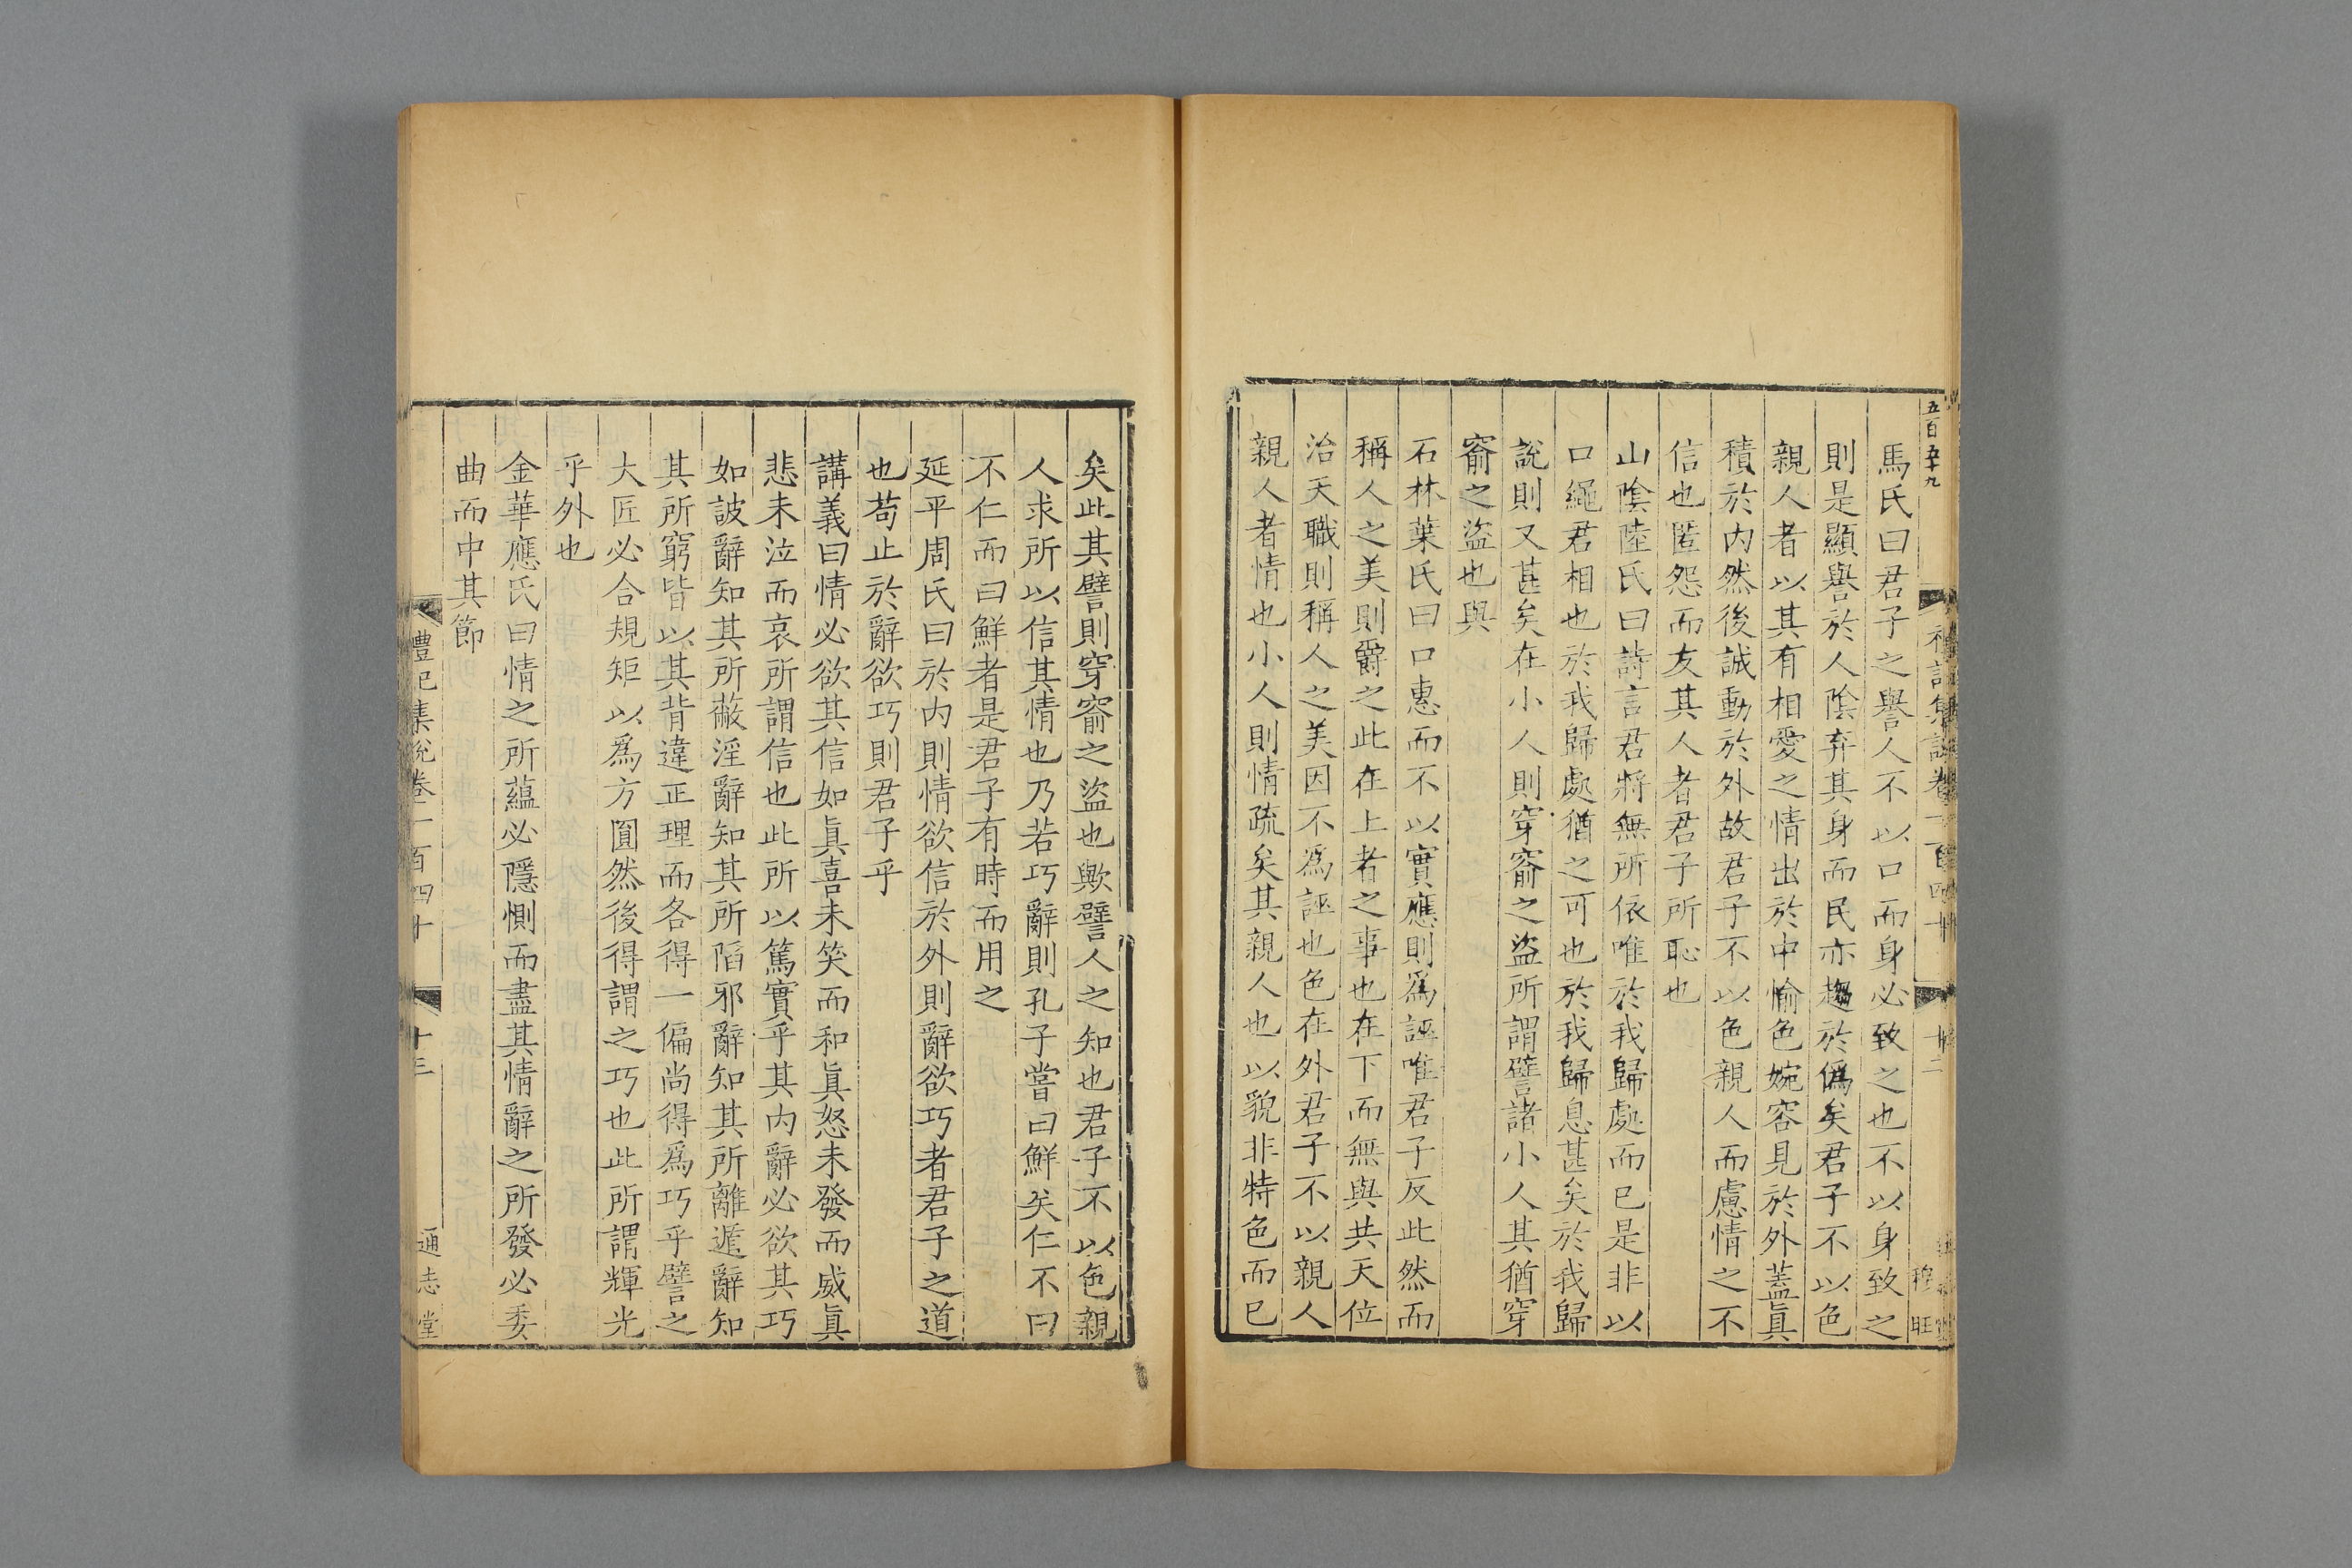 五百五十九
禮記集說卷一百四十
十二
穆旺
馬氏曰君子之譽人不以口而身必致之也不以身致之
則是顯譽於人陰弃其身而民亦趨於僞矣君子不以色
親人者以其有相愛之情出於中愉色婉容見於外蓋眞
積於内然後誠動於外故君子不以色親人而慮情之不
信也匿怨而友其人者君子所恥也
山陰陸氏曰詩言君將無所依唯於我歸處而已是非以
口繩君相也於我歸處猶之可也於我歸息甚矣於我歸
說則又甚矣在小人則穿窬之盜所謂譬諸小人其猶穿
窬之盜也與
石林葉氏曰口惠而不以實應則爲誣唯君子反此然而
稱人之美則爵之此在上者之事也在下而無與共天位
治天職則稱人之美因不爲誣也色在外君子不以親人
親人者情也小人則情疏矣其親人也以貌非特色而已
矣此其譬則穿窬之盜也歟譬人之知也君子不以色親
人求所以信其情也乃若巧辭則孔子嘗曰鮮矣仁不曰
不仁而曰鮮者是君子有時而用之
延平周氏曰於内則情欲信於外則辭欲巧者君子之道
也苟止於辭欲巧則君子乎
講義曰情必欲其信如眞喜未笑而和眞怒未發而威眞
悲未泣而哀所謂信也此所以篤實乎其内辭必欲其巧
如詖辭知其所蔽淫辭知其所陷邪辭知其所離遁辭知
其所窮皆以其背違正理而各得一偏尚得爲巧乎譬之
大匠必合規矩以爲方圓然後得謂之巧也此所謂輝光
乎外也
金華應氏曰情之所蘊必隱惻而盡其情辭之所發必委
曲而中其節
禮記集說卷一百四十
十三
通志堂